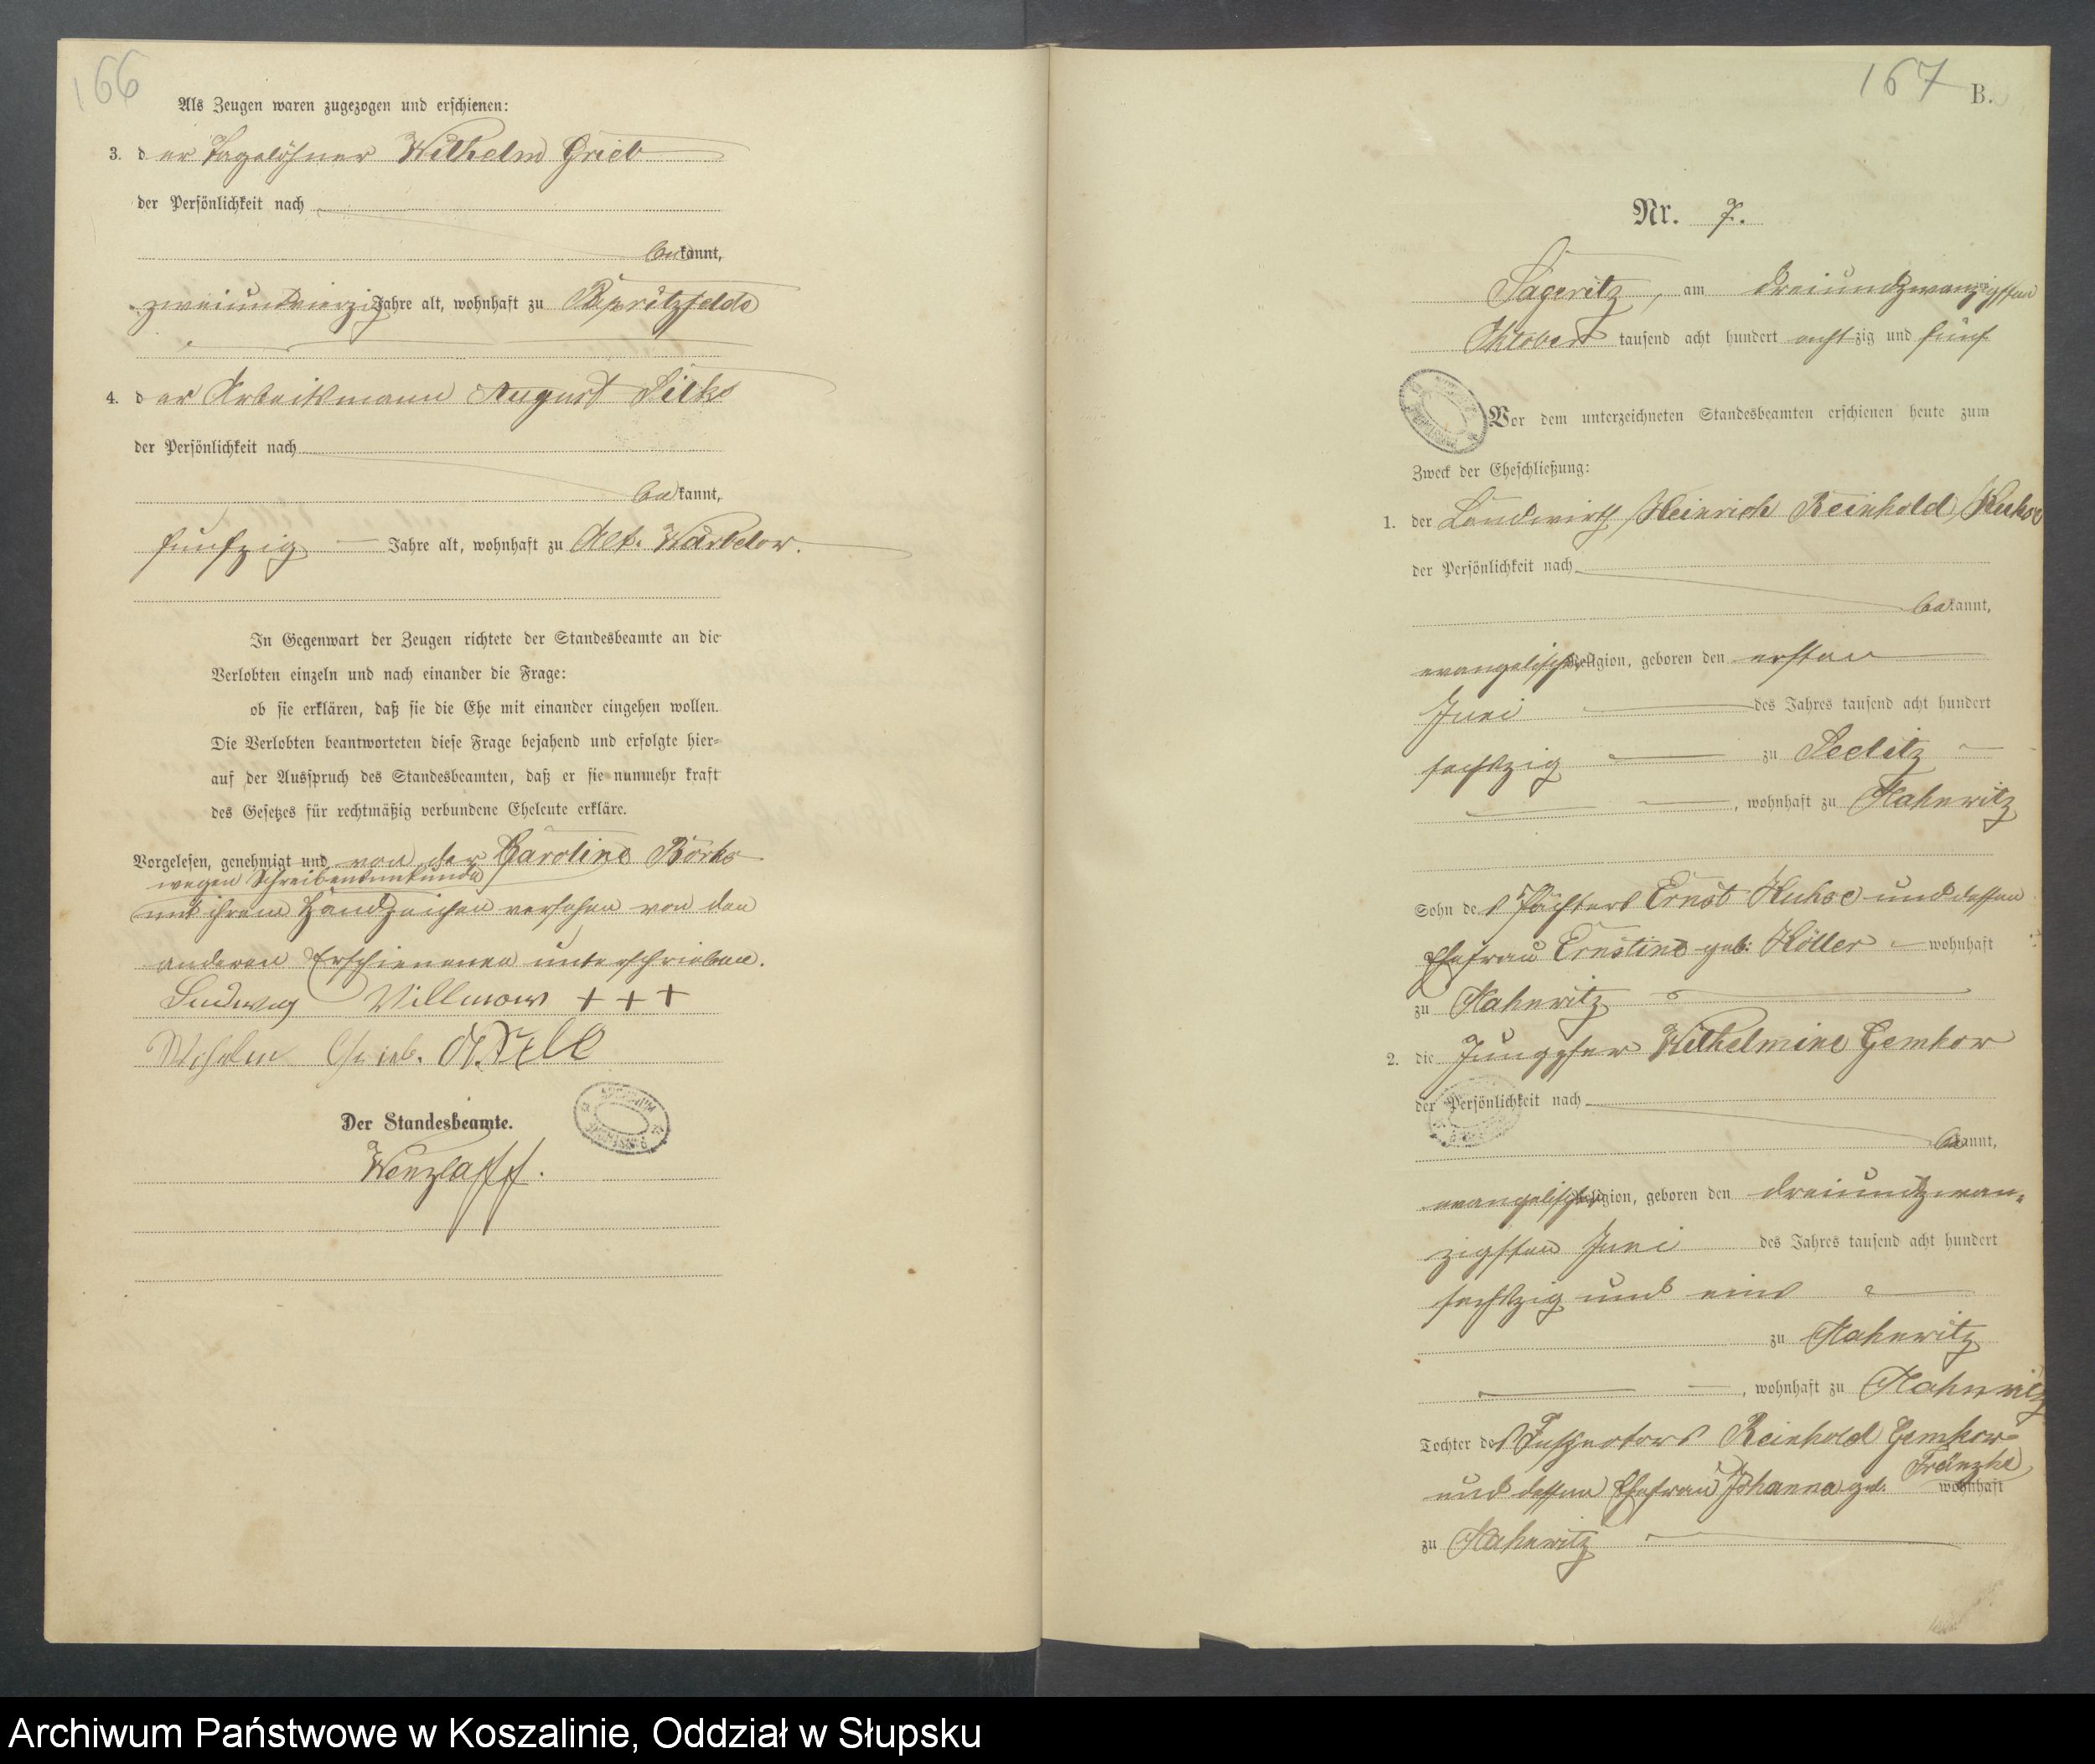 166
Als Zeugen waren zugezogen und erschienen:
3. der Tagelöhner Wilhelm Grieb
der Persönlichkeit nach
bekannt,
zweiundvierzig Jahre alt, wohnhaft zu
4. der Arbeitsmann August
der Persönlichkeit nach
bekannt,
fünfzig Jahre alt, wohnhaft zu Alt. Warbelow.
In Gegenwart der Zeugen richtete der Standesbeamte an die
Verlobten einzeln und nach einander die Frage:
ob sie erklären, daß sie die Ehe mit einander eingehen wollen.
Die Verlobten beantworteten diese Frage bejahend und erfolgte hier-
auf der Ausspruch des Standesbeamten, daß er sie nunmehr kraft
des Gesetzes für rechtmäßig verbundene Eheleute erkläre.
Vorgelesen, genehmigt und von der Caroline
wegen Schreibensunkunde
mit ihrem Handzeichen versehen von den
anderen Erschienenen unterschrieben.
Ludwig Villmow + + +
Wilhelm Grieb.
Der Standesbeamte.
Wenzlaff.
167
B.
Nr. 7.
Sageritz, am dreiundzwanzigsten
Oktober tausend acht hundert achtzig und fünf
Vor dem unterzeichneten Standesbeamten erschienen heute zum
Zweck der Eheschließung:
1. der Landwirth Heinrich Reinhold Kuhse
der Persönlichkeit nach
bekannt,
evangelischer Religion, geboren den ersten
Juni des Jahres tausend acht hundert
sechszig zu
, wohnhaft zu
Sohn des Pächters Ernst Kuhse und dessen
Ehefrau Ernstine geb: Köller wohnhaft
zu
2. die Jungfer Wilhelmine Gemkow
der Persönlichkeit nach
bekannt,
evangelischer Religion, geboren den dreiundzwan-
zigsten Juni des Jahres tausend acht hundert
sechszig und eins
zu
, wohnhaft zu
Tochter des Inspectors Reinhold Gemkow
und dessen Ehefrau Johanna geb. Fränzke wohnhaft
zu
Archiwum Państwowe w Koszalinie, Oddział w Słupsku